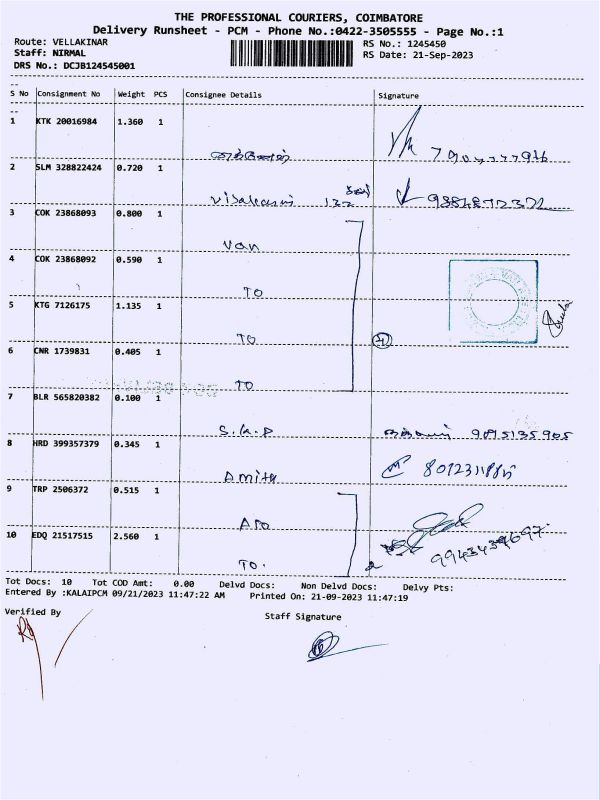 THE PROFESSIONAL COURIERS, COIMBATORE
Delivery Runsheet - PCM - Phone No.:0422-3505555 - Page No.:1
Route: VELLAKINAR RS No.: 1245450
Staff: NIRMAL RS Date: 21-Sep-2023
DRS No.: DCJB124545001
S No Consignment No Weight PCS Consignee Details Signature
1 KTK 20016984 1.360 1
2 SLM 328822424 0.720 1
3 COK 23868093 0.800 1
Van
4 COK 23868092 0.590 1
TO
5 KTG 7126175 1.135 1
TO
6 CNR 1739831 0.405 1
TO
7 BLR 565820382 0.100 1
S.K.P 9095135905
8 HRD 399357379 0.345 1
Amith
9 TRP 2506372 0.515 1
10 EDQ 21517515 2.560 1
TO.
Tot Docs: 10 Tot COD Amt: 0.00 Delvd Docs: Non Delvd Docs: Delvy Pts:
Entered By :KALAIPCM 09/21/2023 11:47:22 AM Printed On: 21-09-2023 11:47:19
Verified By
Staff Signature